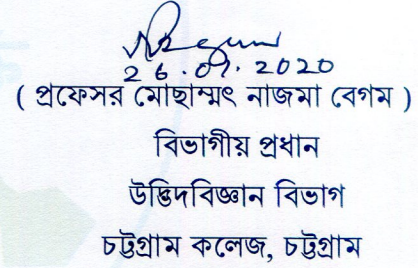 NBegum
26.07.2020
( প্রফেসর মোছাম্মৎ নাজমা বেগম )
বিভাগীয় প্রধান
উদ্ভিদবিজ্ঞান বিভাগ
চট্টগ্রাম কলেজ, চট্টগ্রাম